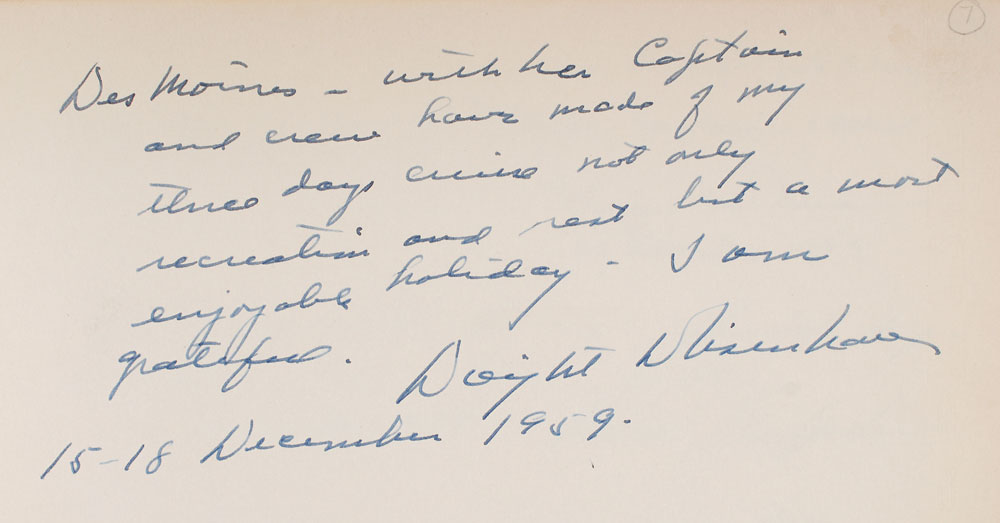 7
Des Moines – with her Captain
and crew have made of my
three days cruise not only
recreation and rest but a most
enjoyable holiday - I am
grateful.
Dwight D Eisenhower
15-18 December 1959.